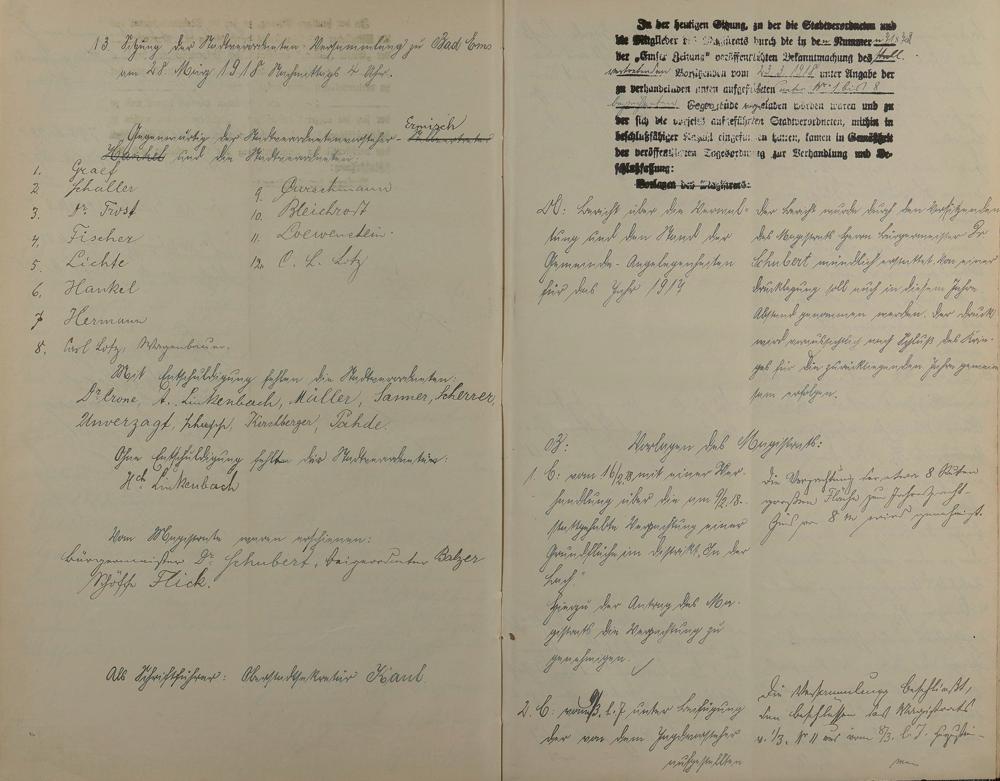 13. Sitzung der Stadtverordneten-Versammlung zu Bad Ems
am 28. März 1918 Nachmittags 4 Uhr.
Ermisch
Gegenwärtig der Stadtverordnetenvorsteher-
und die Stadtverordneten:
1. Graef
2. Schaller
3. Dr. Frost
4. Fischer
5. Lichte
6. Hankel
7. Hermann
8. Carl Lotz, Wagenbauer.
9.
10. Bleichrost
11. Loewenstein.
12. C. L. Lotz
Mit Entschuldigung fehlen die Stadtverordneten:
Dr. Crone, A. Linkenbach, Müller, Sanner, Scherrer,
Unverzagt, Kirchberger, Pähde.
Ohne Entschuldigung fehlen die Stadtverordneten:
Hch. Linkenbach
Vom Magistrate waren erschienen:
Bürgermeister Dr. Schubert, Beigeordneter Balzer
Schöffe Flick.
Als Schriftführer: Oberstadtsekretär Kaul
In der heutigen Sitzung, zu der die Stadtverordneten und
die Mitglieder des Magistrats durch die in der Nummer
der „Emser Zeitung" veröffentlichten Bekanntmachung des stell.
vertretenden Vorsitzenden vom 23.3.1918 unter Angabe der
zu verhandelnden unten aufgeführten unter No. 1 bis 8
bezeichneten Gegenstände eingeladen worden waren und zu
der sich die vorseits aufgeführten Stadtverordneten, mithin in
beschlußfähiger Anzahl eingefunden hatten, kamen in Gemäßheit
der veröffentlichten Tagesordnung zur Verhandlung und Be-
schlußfassung:
Vorlagen des Magistrats:
A: Bericht über die Verwal-
tung und den Stand der
Gemeinde-Angelegenheiten
für das Jahr 1917
Der Bericht wurde durch den Vorsitzenden
des Magistrats Herrn Bürgermeister Dr.
Schubert mündlich erstattet. Von einer
Drucklegung soll auch in diesem Jahre
Abstand genommen werden. Der Druck
wird voraussichtlich nach Schluß des Krie-
ges für die zurückliegenden Jahre gemein-
sam erfolgen.
B: Vorlagen des Magistrats:
1. B. vom 16/2.18 mit einer Ver-
handlung über die am 9/2.18.
stattgehabte Verpachtung einer
Grundfläche im Distrikt „In der
Bach"
Hierzu der Antrag des Ma-
gistrats die Verpachtung zu
genehmigen.
Die Verpachtung der etwa 8 Ruten
großen Fläche zum Jahrespacht-
zins von 8 M wird genehmigt.
2. B. vom l. J. unter Beifügung
der von dem Jagdvorsteher
aufgestellten
Die Versammlung beschließt,
den Beschlüssen des Magistrats
v. 1/3. No 11 und vom 8/3. l. J. zuzustim-
men